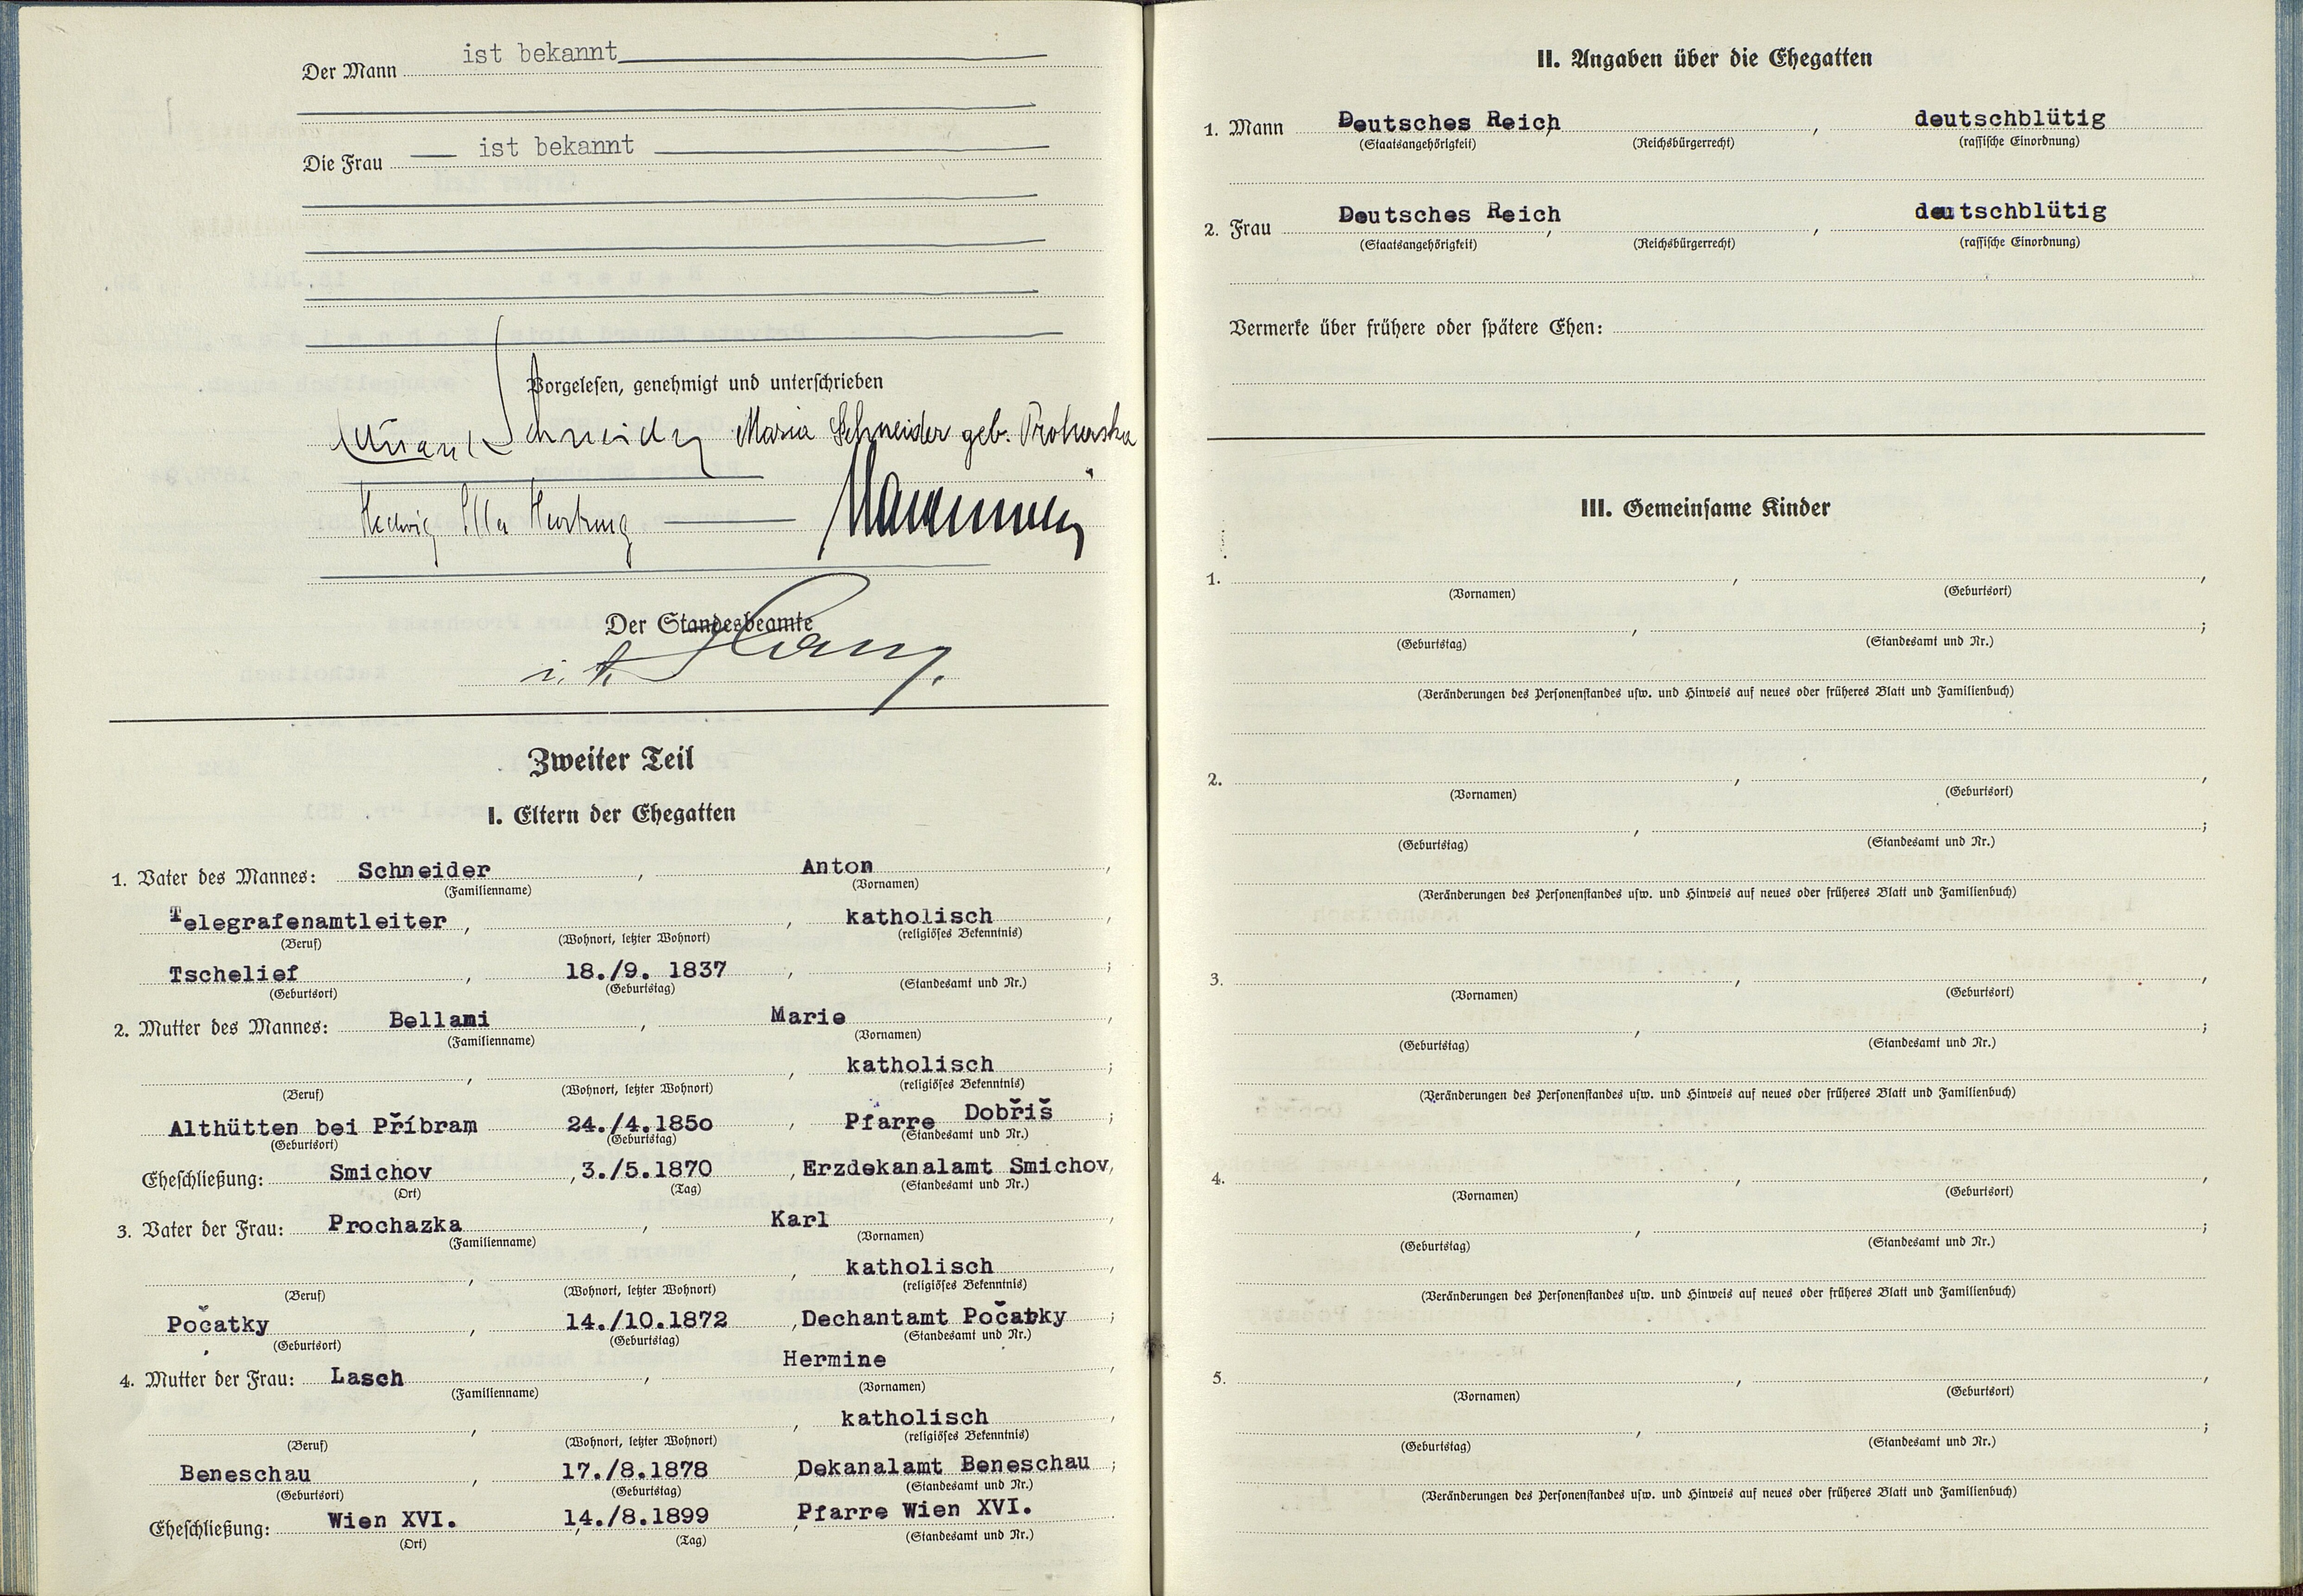 Der Mann ist bekannt
Die Frau ist bekannt
Vorgelesen, genehmigt und unterschrieben
Schneider Maria Schneider geb. Prohaska
Hedwig Ella Hartung
Der Standesbeamte
Zweiter Teil
I. Eltern der Ehegatten
1. Vater des Mannes: Schneider, Anton,
(Familienname) (Vornamen)
Telegrafenamtleiter, , katholisch,
(Beruf) (Wohnort, letzter Wohnort) (religiöses Bekenntnis)
Tschelief, 18./9. 1837, ;
(Geburtsort) (Geburtstag) (Standesamt und Nr.)
2. Mutter des Mannes: Bellami, Marie,
(Familienname) (Vornamen)
, , katholisch ;
(Beruf) (Wohnort, letzter Wohnort) (religiöses Bekenntnis)
Althütten bei Příbram, 24./4.1850, Pfarre Dobřiš ;
(Geburtsort) (Geburtstag) (Standesamt und Nr.)
Eheschließung: Smichov, 3./5.1870, Erzdekanalamt Smichov,
(Ort) (Tag) (Standesamt und Nr.)
3. Vater der Frau: Prochazka, Karl,
(Familienname) (Vornamen)
, , katholisch,
(Beruf) (Wohnort, letzter Wohnort) (religiöses Bekenntnis)
Počatky, 14./10.1872, Dechantamt Počatky ;
(Geburtsort) (Geburtstag) (Standesamt und Nr.)
4. Mutter der Frau: Lasch, Hermine,
(Familienname) (Vornamen)
, , katholisch,
(Beruf) (Wohnort, letzter Wohnort) (religiöses Bekenntnis)
Beneschau, 17./8.1878, Dekanalamt Beneschau ;
(Geburtsort) (Geburtstag) (Standesamt und Nr.)
Eheschließung: Wien XVI., 14./8.1899, Pfarre Wien XVI.
(Ort) (Tag) (Standesamt und Nr.)
II. Angaben über die Ehegatten
1. Mann Deutsches Reich, , deutschblütig
(Staatsangehörigkeit) (Reichsbürgerrecht) (rassische Einordnung)
2. Frau Deutsches Reich, , deutschblütig
(Staatsangehörigkeit) (Reichsbürgerrecht) (rassische Einordnung)
Vermerke über frühere oder spätere Ehen:
III. Gemeinsame Kinder
1. , ,
(Vornamen) (Geburtsort)
, ;
(Geburtstag) (Standesamt und Nr.)
(Veränderungen des Personenstandes usw. und Hinweis auf neues oder früheres Blatt und Familienbuch)
2. , ,
(Vornamen) (Geburtsort)
, ;
(Geburtstag) (Standesamt und Nr.)
(Veränderungen des Personenstandes usw. und Hinweis auf neues oder früheres Blatt und Familienbuch)
3. , ,
(Vornamen) (Geburtsort)
, ;
(Geburtstag) (Standesamt und Nr.)
(Veränderungen des Personenstandes usw. und Hinweis auf neues oder früheres Blatt und Familienbuch)
4. , ,
(Vornamen) (Geburtsort)
, ;
(Geburtstag) (Standesamt und Nr.)
(Veränderungen des Personenstandes usw. und Hinweis auf neues oder früheres Blatt und Familienbuch)
5. , ,
(Vornamen) (Geburtsort)
, ;
(Geburtstag) (Standesamt und Nr.)
(Veränderungen des Personenstandes usw. und Hinweis auf neues oder früheres Blatt und Familienbuch)